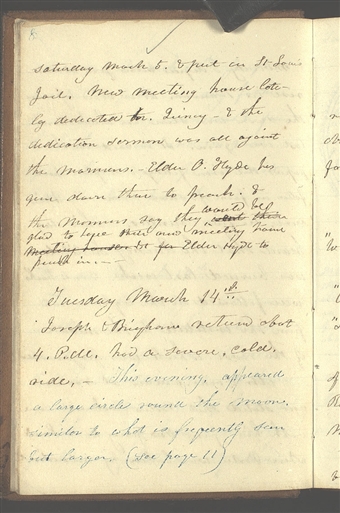 8
saturday March 5. & put in St Louis
Jail. New meeting house late-
ly dedicated in. Quincy - & the
dedication sermon was all against
the Mormons. - Elder O. Hyde has
gone down there to preach. &
the Mormons say they would be
glad to have their new meeting house
meeting house for Elder Hyde to
preach in. —
Tuesday March 14th
Joseph & Brigham returned about
4. P.M. had a severe, cold.
ride. - This evening, appeared
a large circles round the moon.
similar to what is frequently seen
but larger. (see page 11)